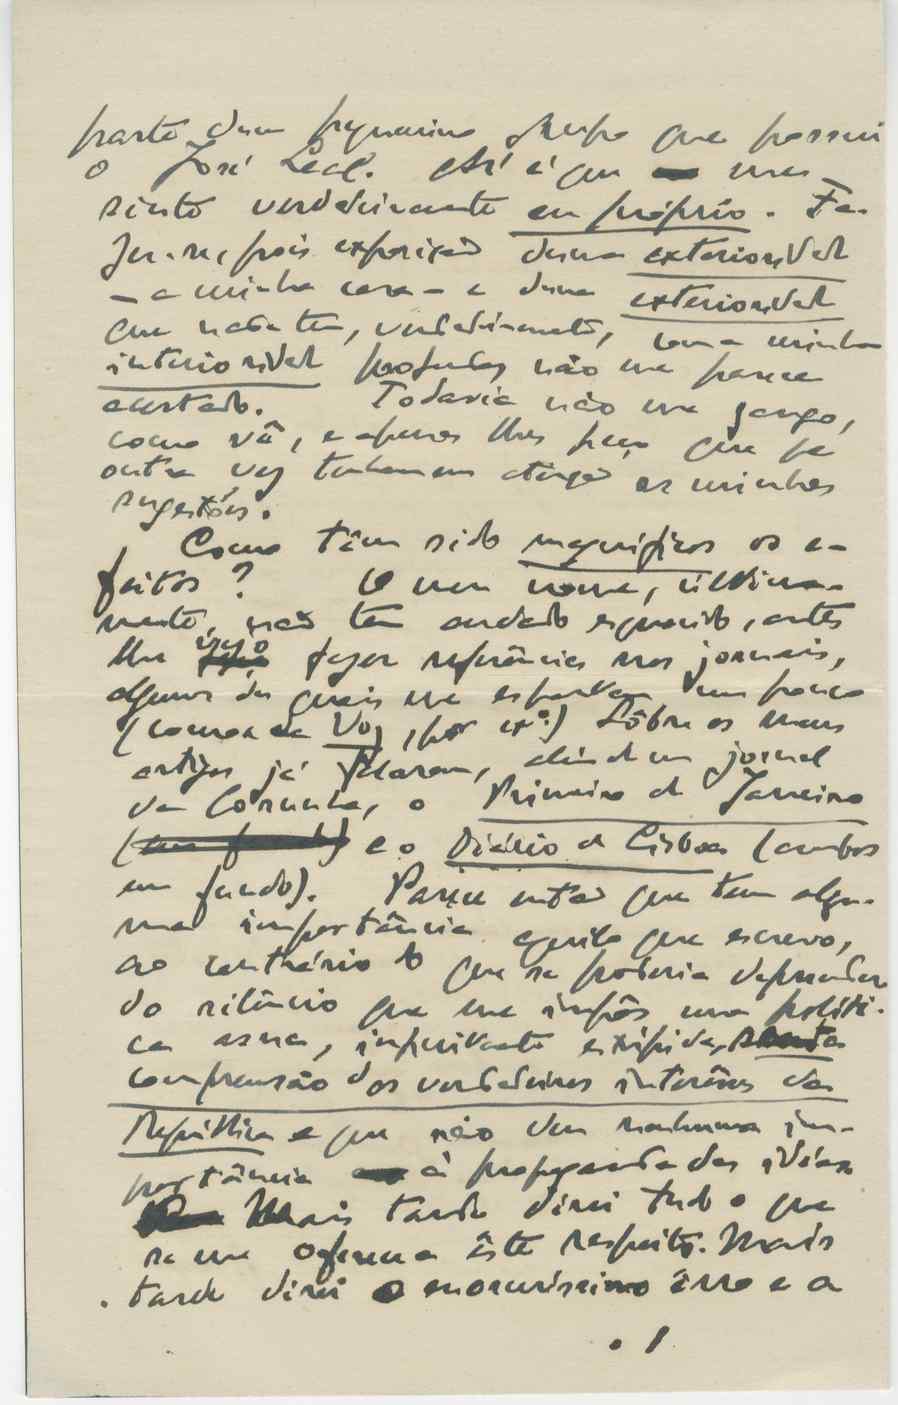 parte dum pequenino grupo que possui
o José Leal. Aí é que me
sinto verdadeiramente eu próprio. Fa-
zer-se, pois exposição duma exterioridade
– a minha cara – e duma exterioridade
que nada tem, verdadeiramente, com a minha
interioridade profunda, não me parece
acertado. Todavia não me zango,
como vê, e apenas lhes peço que pa
outra vez tenham em atenção as minhas
sugestões.
Como têm sido magníficos os e-
feitos? O meu nome, ultima-
mente, não tem andado esquecido, antes
lhe vejo fazer referências nos jornais,
alguns dos quais me espantam um pouco
(como a da Voz, por ex.º) Sôbre os meus
artigos já falaram, além dum jornal
da Corunha, o Primeiro de Janeiro
e o Diário de Lisboa (ambos
em fundo). Parece então que tem algu-
ma importância aquilo que escrevo,
ao contrário do que se poderia depreender
do silêncio que me impôs uma políti-
ca asna, estúpida,
compreensão dos verdadeiros interêsses da
República e que não deu nenhuma im-
portância à propaganda das idéias
Mais tarde direi tudo o que
se me oferece a êste respeito. Mais
tarde direi o enormíssimo êrro e a